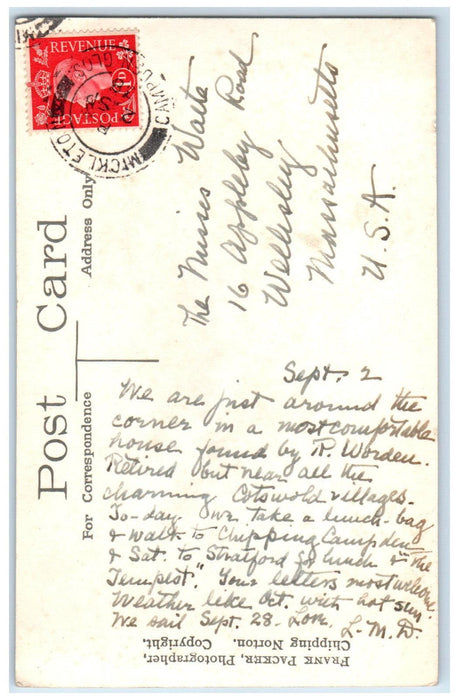 REVENUE
1D
POSTAGE
MICKLETON
CAMPDEN
GLOS
Post Card
For Correspondence
Address Only
The Misses Waite
16 Appleby Road
Wellesley
Massachusetts
U.S.A.
Sept. 2
We are just around the
corner in a most comfortable
house found by R. Worden.
Retired but near all the
charming Cotswold villages.
To-day we take a lunch-bag
& walk to Chipping Campden
& Sat. to Stratford for lunch & "The
Tempest". Your letters most welcome.
Weather like Oct. with hot sun.
We sail Sept. 28. Love.
L.M.D.
FRANK PACKER, Photographer,
Chipping Norton. Copyright.